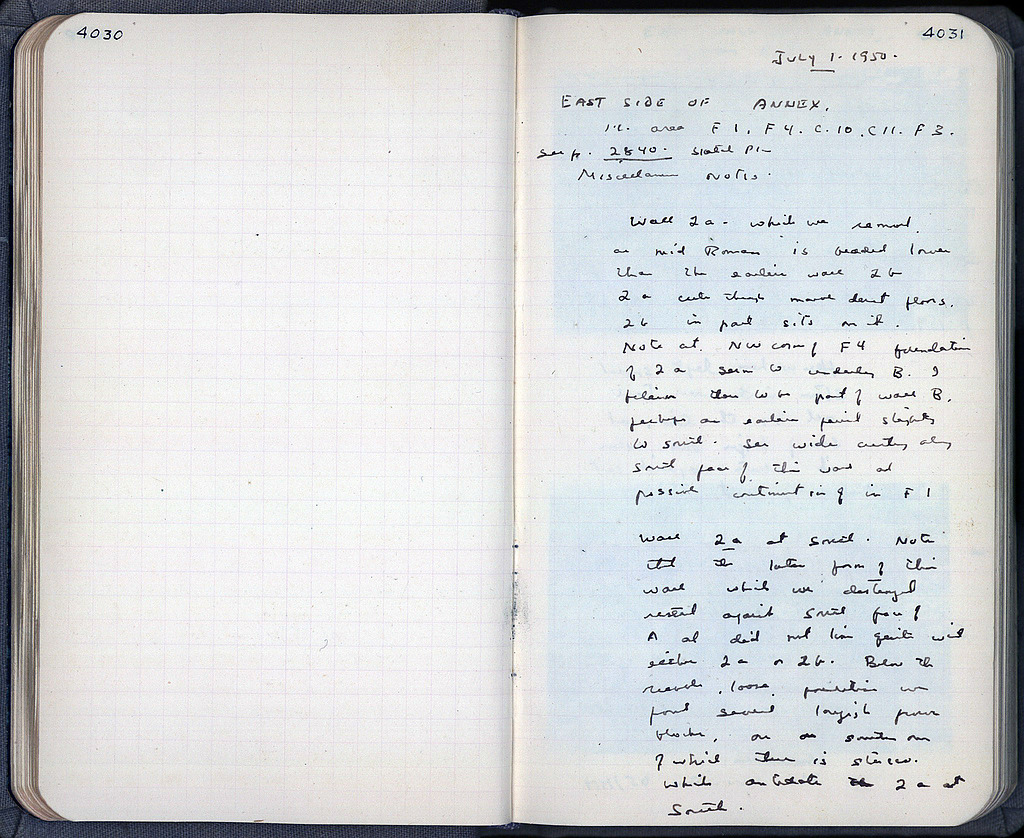 4030
4031
July 1. 1950.
EAST SIDE OF ANNEX.
i.e. area F1, F4. C.10, C11. F3.
See p. 2840.
Notes.
Wall 2a - which we
as mid Roman is lower
than the earlier wall 2b
2a cuts through floors.
2b in part sits on it.
Note at NW corner of F4 foundation
of 2a seems to underlie B. I
believe this to be part of wall B,
perhaps an earlier period slightly
to south. See wide cutting along
south face of this wall and
possible in F1
Wall 2a at south. Note
that the later form of this
wall which we destroyed
rested against south face of
A and did not line quite with
either 2a or 2b. Below the
loose foundation we
found several longish poros
blocks, on the southern one
of which there is stucco.
Which antedate the 2a at
South.